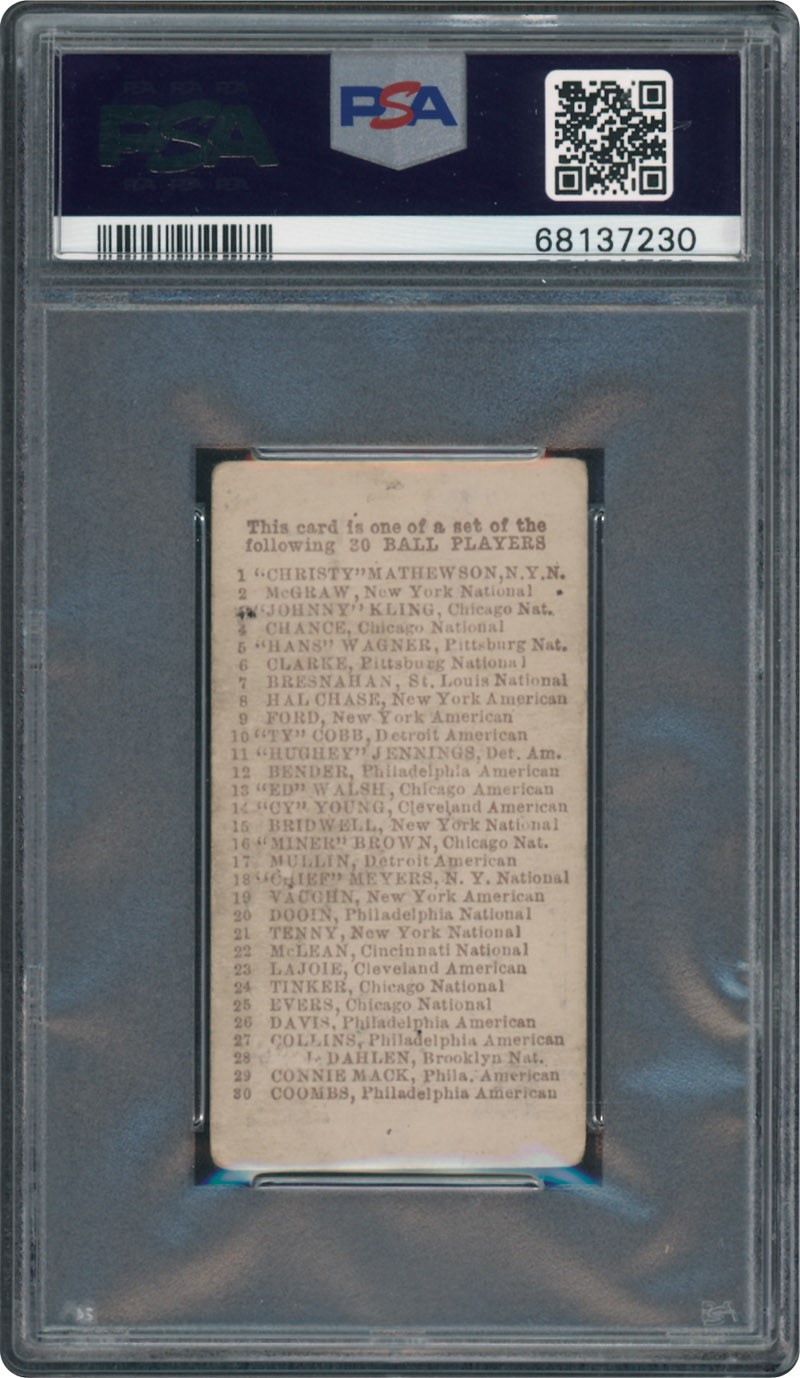 PSA
PSA
68137230
This card is one of a set of the
following 30 BALL PLAYERS
1 "CHRISTY" MATHEWSON, N.Y.N.
2 McGRAW, New York National
"JOHNNY" KLING, Chicago Nat.
4 CHANCE, Chicago National
5 "HANS" WAGNER, Pittsburg Nat.
6 CLARKE, Pittsburg National
7 BRESNAHAN, St. Louis National
8 HAL CHASE, New York American
9 FORD, New York American
10 "TY" COBB, Detroit American
11 "HUGHEY" JENNINGS, Det. Am.
12 BENDER, Philadelphia American
13 "ED" WALSH, Chicago American
14 "CY" YOUNG, Cleveland American
15 BRIDWELL, New York National
16 "MINER" BROWN, Chicago Nat.
17 MULLIN, Detroit American
18 "CHIEF" MEYERS, N. Y. National
19 VAUGHN, New York American
20 DOOIN, Philadelphia National
21 TENNY, New York National
22 McLEAN, Cincinnati National
23 LAJOIE, Cleveland American
24 TINKER, Chicago National
25 EVERS, Chicago National
26 DAVIS, Philadelphia American
27 COLLINS, Philadelphia American
28 DAHLEN, Brooklyn Nat.
29 CONNIE MACK, Phila. American
30 COOMBS, Philadelphia American
PSA